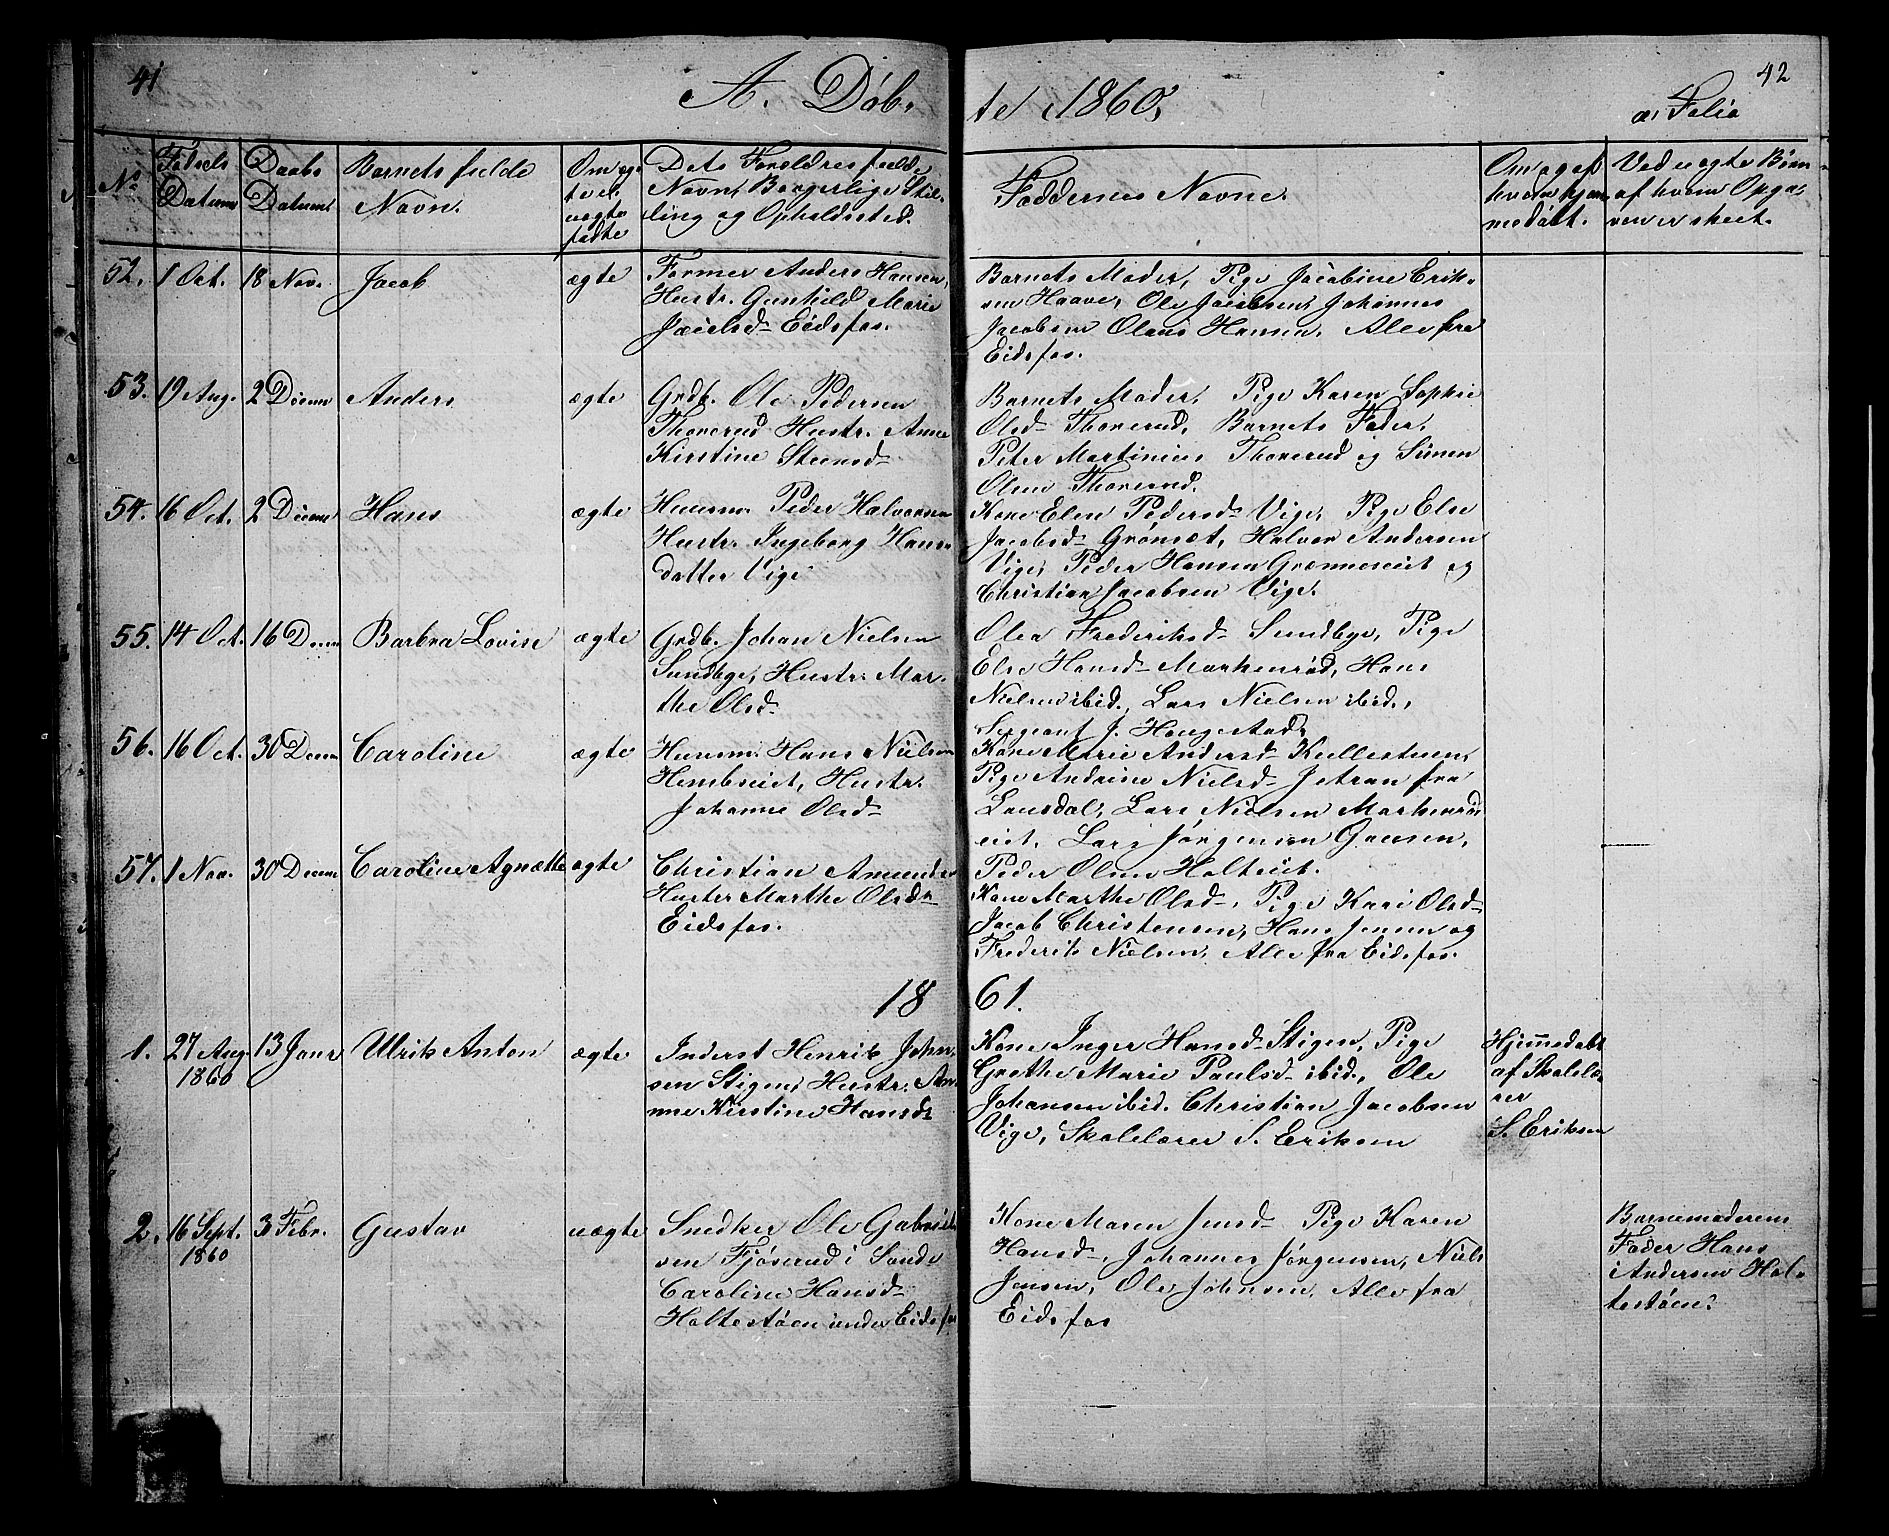 41
A. Døb-
te 1860,
42
a, Folio
No
Fødsels Datum
Daabs Datum
Barnets fulde Navn.
Om ægte el. uægte fødte
Dets Forældres fulde
Navn, Borgerlige Stil-
ling og Opholdssted.
Faddernes Navne.
Om og af hvem hjemmedøbt.
Ved uægte Børn af hvem Opga-
ven er skeet.
52. 1 Oct. 18 Nov. Jacob ægte
Former Anders Hansen,
Hustr. Gunhild Marie
Jacobsd. Eidsfos.
Barnets Moder, Pige Jacobine Erik-
sen Haave, Ole Jacobsen, Johannes
Jacobsen Olaus Hansen, Alle fra
Eidsfos.
53. 19 Aug. 2 Decem Anders ægte
Grdb. Ole Pedersen
Thorerud Hustr. Anne
Kirstine Steensd.
Barnets Moder, Pige Karen Sophie
Olsd. Thorerud, Barnets Fader,
Peter Martinius Thorerud og Simen
Olsen Thorerud.
54. 16 Oct. 2 Decem Hans ægte
Huusm. Peder Halvorsen
Hustr. Ingeborg Hans-
datter Vige
Kone Elen Pedersd. Vige, Pige Else
Jacobsd. Grønsæt, Halvor Andersen
Vige, Peder Hansen Grænneseiet og
Christian Jacobsen Vige.
55. 14 Oct. 16 Decem Barbra Lovise ægte
Grdb. Johan Nielsen
Sundbye, Hustr. Mar-
the Olsd.
Olea Frederiksd. Sundbye, Pige
Else Hansd. Markerød, Hans
Nielsen ibid., Lars Nielsen ibid.,
Sergeant J. Haugestad,
56. 16 Oct. 30 Decem Caroline ægte
Huusm. Hans Nielsen
Hembseiet, Hustr.
Johanne Olsd.
Kone Marie Andersd. Kullesteen,
Pige Andrine Nielsd. Jetran fra
Lansdal, Lars Nielsen Markerød
eiet, Lars Jørgensen Gausen,
Peder Olsen Holteiet.
57. 1 Nov. 30 Decem Caroline Agnætte ægte
Christian Amunds
Huster Marthe Olsdr
Eidsfos.
Kone Marthe Olsd., Pige Kari Olsd.
Jacob Christensen, Hans Jensen og
Frederik Nielsen, Alle fra Eidsfos.
18 61.
1. 27 Aug. 1860 13 Janr Ulrik Anton ægte
Inderst Henrik Johan-
sen Stigen, Hustr. An-
ne Kirstine Hansd.
Kone Inger Hansd. Stigen, Pige
Grethe Marie Paulsd. ibid., Ole
Johansen ibid. Christian Jacobsen
Vige, Skolelærer S. Eriksen
Hjemmedøbt
af Skolelæ-
rer
S. Eriksen
2. 16 Sept. 1860 3 Febr. Gustav uægte
Snedker Ole Gabriel-
sen Fjøserud i Sande
Caroline Hansd.
Holtestøen under Eidsfos
Kone Maren Jensd. Pige Karen
Hansd., Johannes Jørgensen, Niels
Jensen, Ole Johnsen, Alle fra
Eidsfos
Barnemoderens
Fader Hans
Andersen Hol-
testøen.